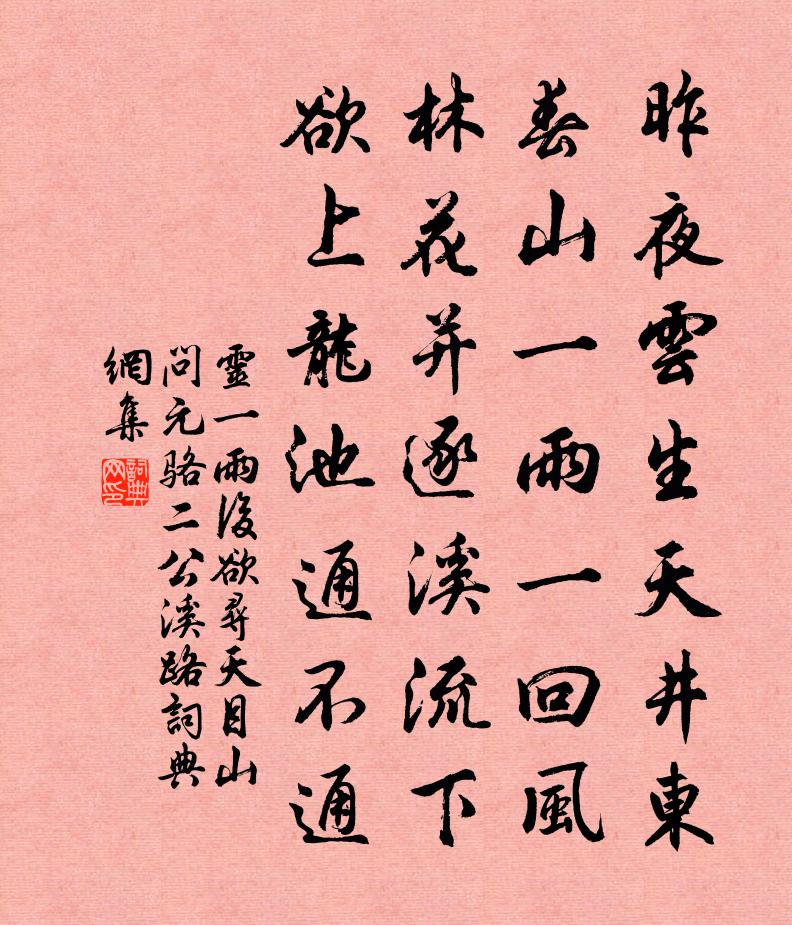 昨夜雲生天井東
春山一雨一回風
林花并逐溪流下
欲上龍池通不通
靈一雨後欲尋天目山
問元骆二公溪路詞典
網集
詞典网印